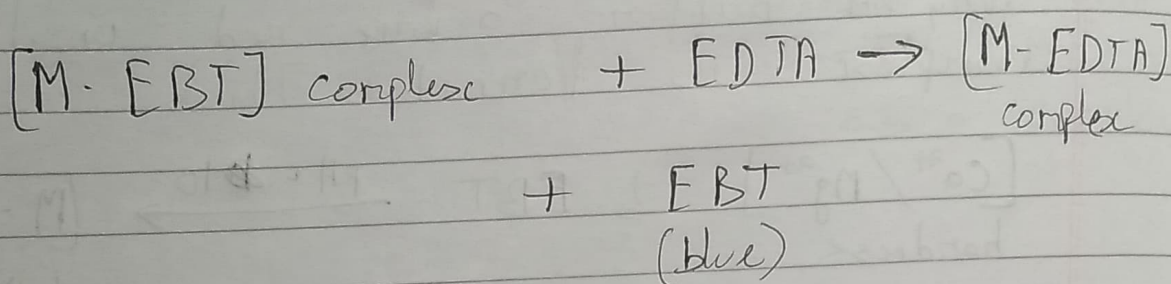 [M. EBT] complex + EDTA → [M-EDTA]
complex
+ EBT
(blue)